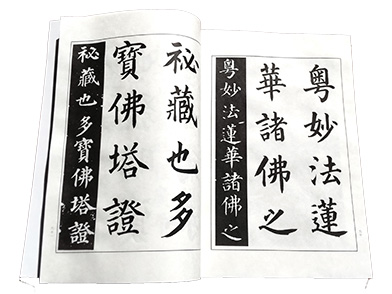 粤妙法蓮
華諸佛之
粤妙法蓮華諸佛之
祕藏也多
寶佛塔證
祕藏也多寶佛塔證